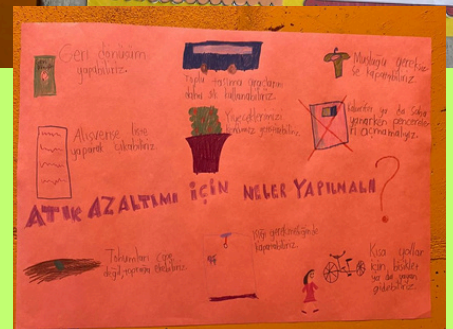 Geri dönüşüm
yapabiliriz.
Toplu taşıma araçlarını
daha sık kullanabiliriz.
Musluğu gereksiz
se kapatabiliriz.
Alışverişe liste
yaparak çıkabiliriz.
Yiyeceklerimizi
kendimiz
ya da soba
yanarken pencereleri
açmamalıyız.
ATIK AZALTIMI İÇİN NELER YAPILMALI?
Tohumları çöpe
değil, toprağa
Işığı gerekmediğinde
kapatabiliriz.
Kısa yollar
için, bisiklet
ya da yayan
gidebiliriz.